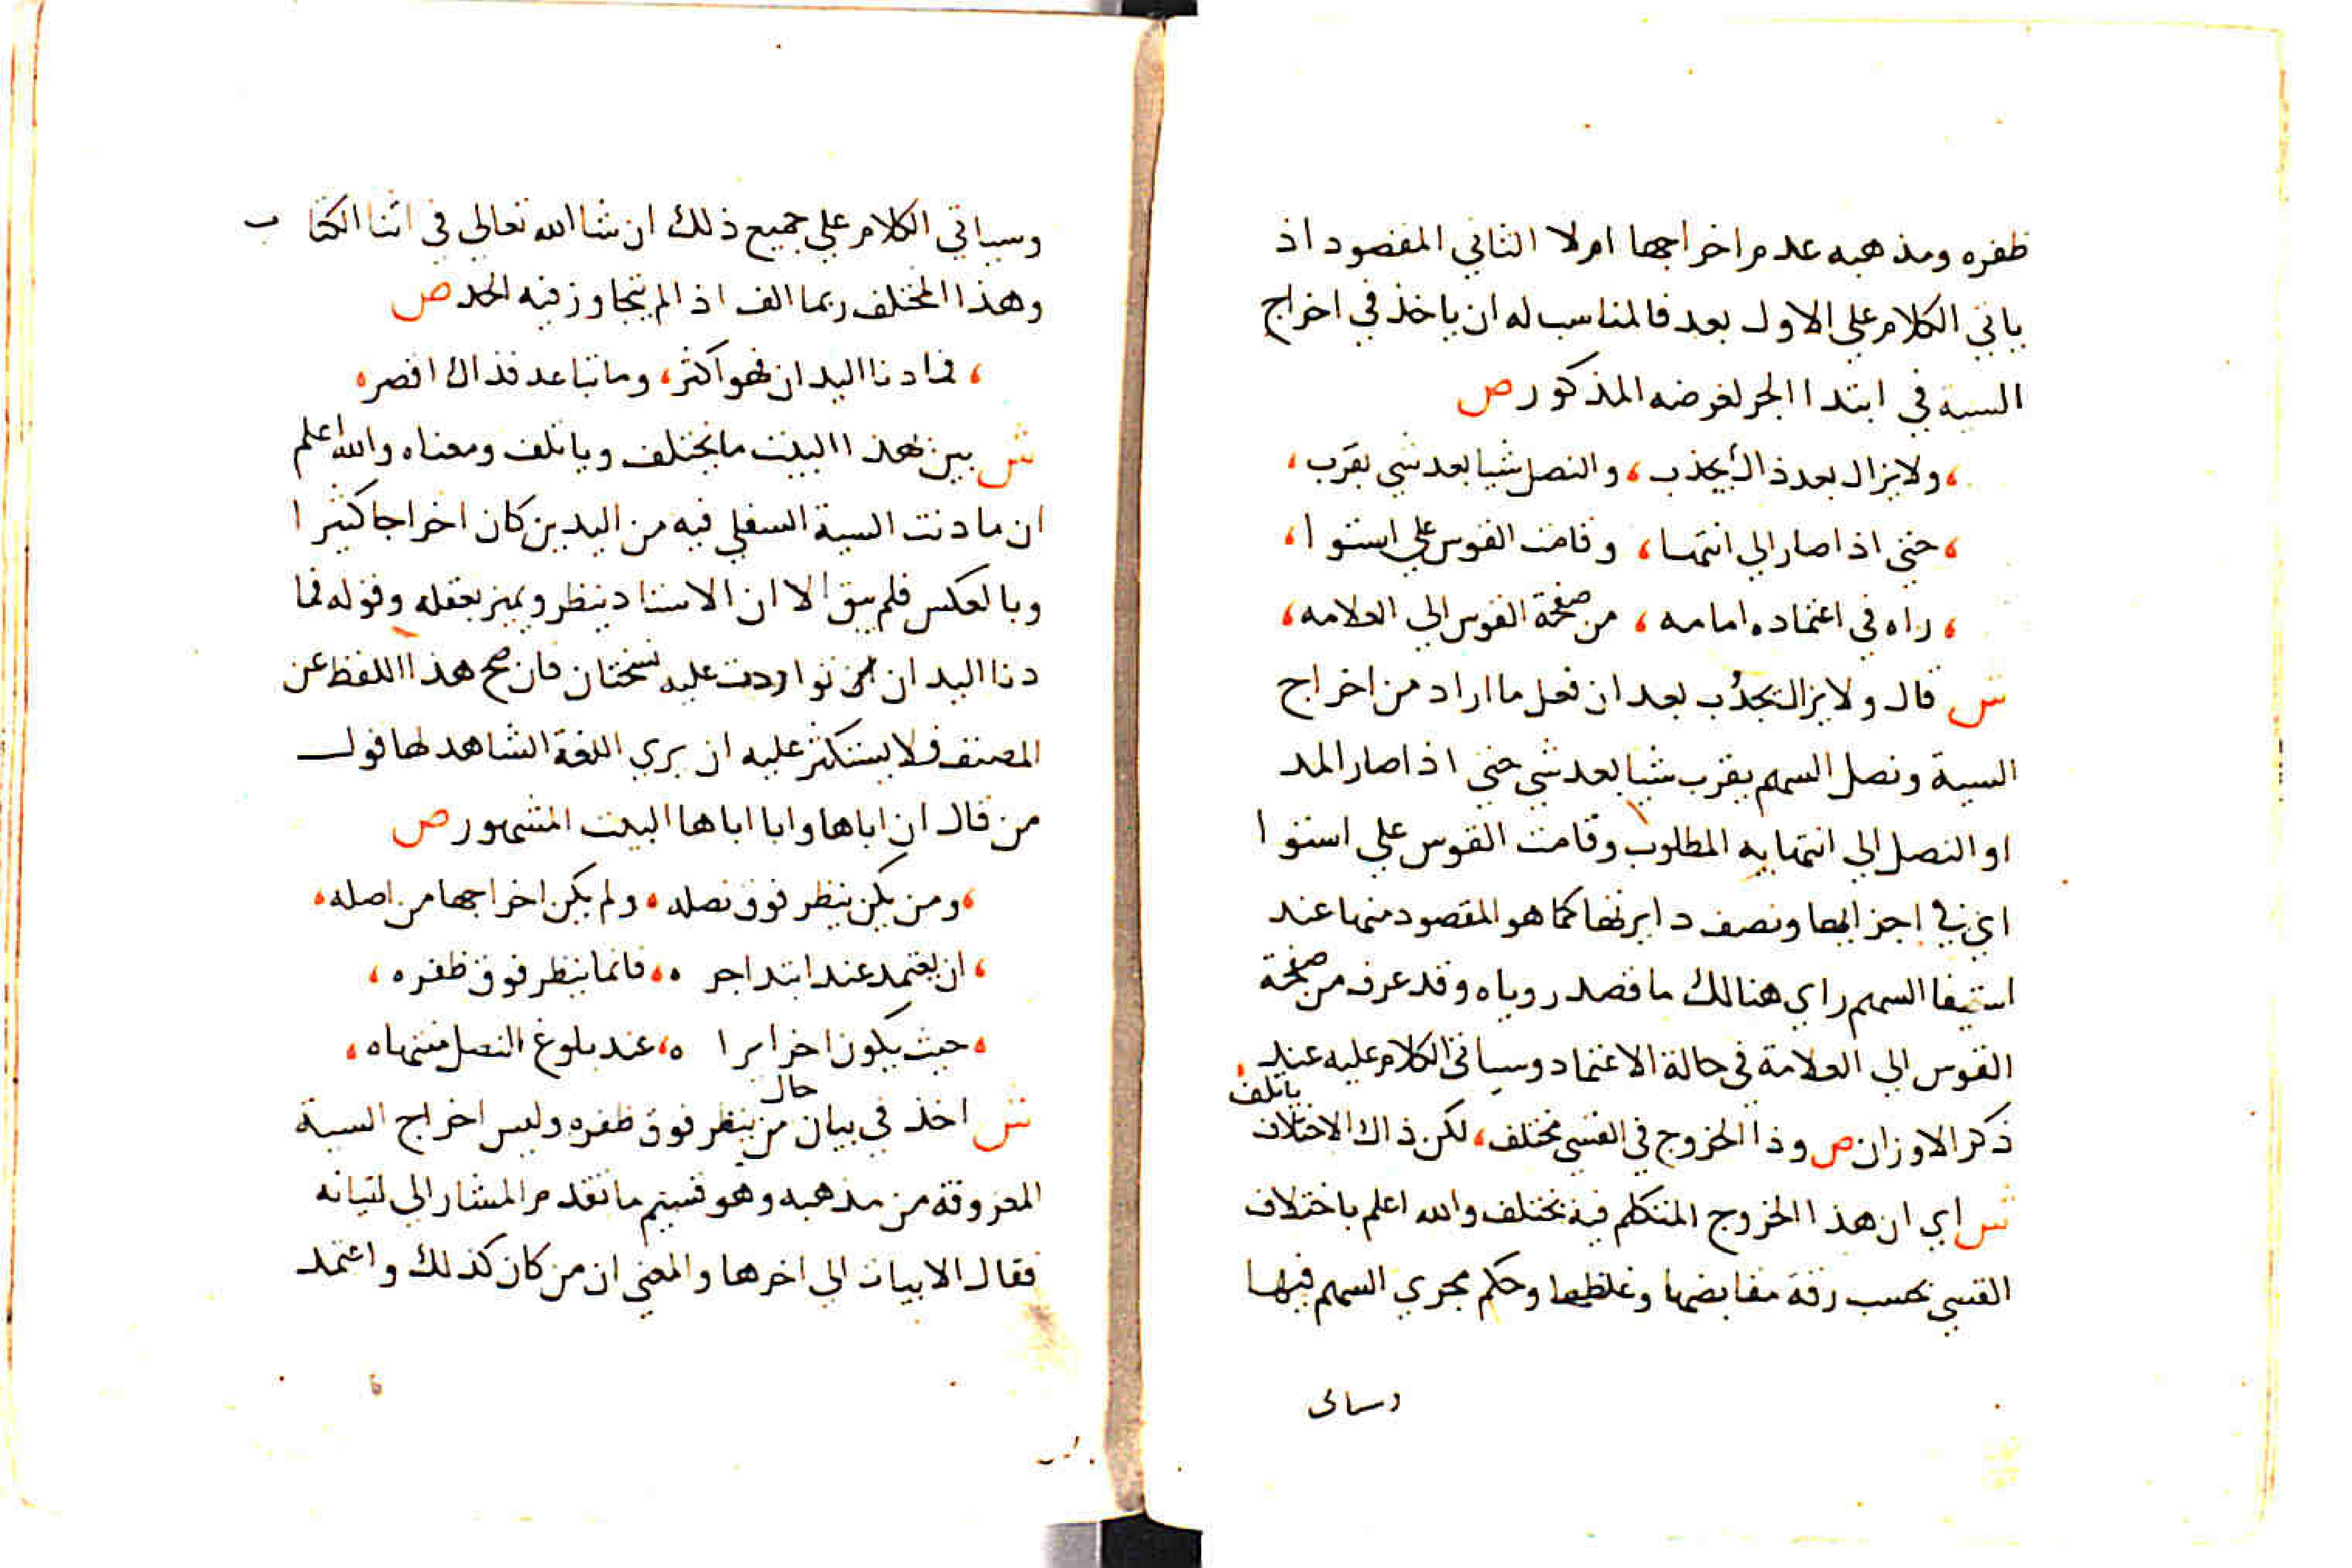 ظفره ومذهبه عدم اخراجها ام لا الثاني المقصود اذ
ياتي الكلام علي الاول بعد فالمناسب له ان ياخذ في اخراج
السية في ابتدا الجر لغرضه المذكور ص
، ولا يزال بعد ذاك يجذب ، والنصل شيا بعد شي يقرب ،
، حتي اذا صار الي انتها ، وقامت القوس علي استوا ،
، راه في اعتماده امامه ، من صفحة القوس الي العلامه ،
ش قال ولا يزال يجذب بعد ان فعل ما اراد من اخراج
السية ونصل السهم يقرب شيا بعد شي حتي اذا صار المد
او النصل الي انتهايه المطلوب وقامت القوس علي استوا
اي في اجزايها ونصف دايرتها كما هو المقصود منها عند
استيفا السهم راي هنالك ما قصد روياه وقد عرف من صفحة
القوس الي العلامة في حالة الاعتماد وسياتي الكلام عليه عند
ذكر الاوزان ص وذا الخروج في القسي مختلف ، لكن ذاك الاختلاف ياتلف
ش اي ان هذا الخروج المتكلم فيه يختلف والله اعلم باختلاف
القسي بحسب رقة مقابضها وغلظها وحكم مجري السهم فيها
وسياتي
وسياتي الكلام علي جميع ذلك ان شا الله تعالي في اثنا الكتاب
وهذا المختلف ربما الف اذا لم يتجاوز فيه الحد ص
، فما دنا اليدان فهو اكثر ، وما تباعد فذاك اقصر ،
ش بين بهذا البيت ما يختلف وياتلف ومعناه والله اعلم
ان ما دنت السية السفلي فيه من اليدين كان اخراجا كثيرا
وبالعكس فلم يبق الا ان الاستاد ينظر ويميز بعقله وقوله فما
دنا اليدان تواردت عليه نسختان فان صح هذا اللفظ عن
المصنف فلا يستكثر عليه ان يري اللغة الشاهد لها قول
من قال ان اباها وابا اباها البيت المشهور ص
، ومن يكن ينظر فوق نصله ، ولم يكن اخراجها من اصله ،
، ان يعتمد عند ابتدا جره ، فانما ينظر فوق ظفره ،
، حيث يكون اخرا يراه ، عند بلوغ النصل منتهاه ،
ش اخذ في بيان حال من ينظر فوق ظفره وليس اخراج السية
المعروفة من مذهبه وهو قسيم ما تقدم المشار الي لتيانه
فقال الابيات الي اخرها والمعني ان من كان كذلك واعتمد